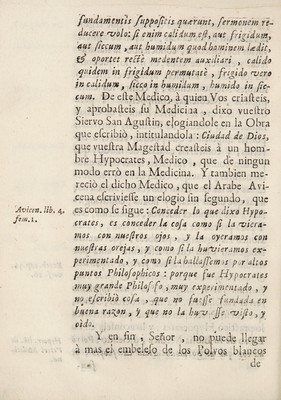 fundamentis suppositis quærunt, sermonem re-
ducere volo: si enim calidum est, aut frigidum,
aut siccum, aut humidum quod hominem lædit,
& oportet recte medentem auxiliari, calido
quidem in frigidum permutatè, frigido vero
in calidum, sicco in humidum, humido in sic-
cum. De este Medico, à quien Vos criasteis,
y aprobasteis su Medicina, dixo vuestro
Siervo San Agustin, elogiandole en la Obra
que escribiò, intitulandola: Ciudad de Dios,
que vuestra Magestad creasteis à un hom-
bre Hypocrates, Medico, que de ningun
modo errò en la Medicina. Y tambien me-
reciò el dicho Medico, que el Arabe Avi-
cena escriviesse un elogio sin segundo, que
Avicen. lib. 4.
fem. 1.
es como se sigue: Conceder lo que dixo Hypo-
crates, es conceder la cosa como si la viera-
mos con nuestros ojos, y la oyeramos con
nuestras orejas, y como si la huvieramos ex-
perimentado, y como si la hallassemos por altos
puntos Philosophicos: porque fue Hypocrates
muy grande Philosofo, muy experimentado, y
no escribiò cosa, que no fuesse fundada en
buena razon, y que no la huviesse visto, y
oìdo.
Y en fin, Señor, no puede llegar
à mas el embeleso de los Polvos blancos
de